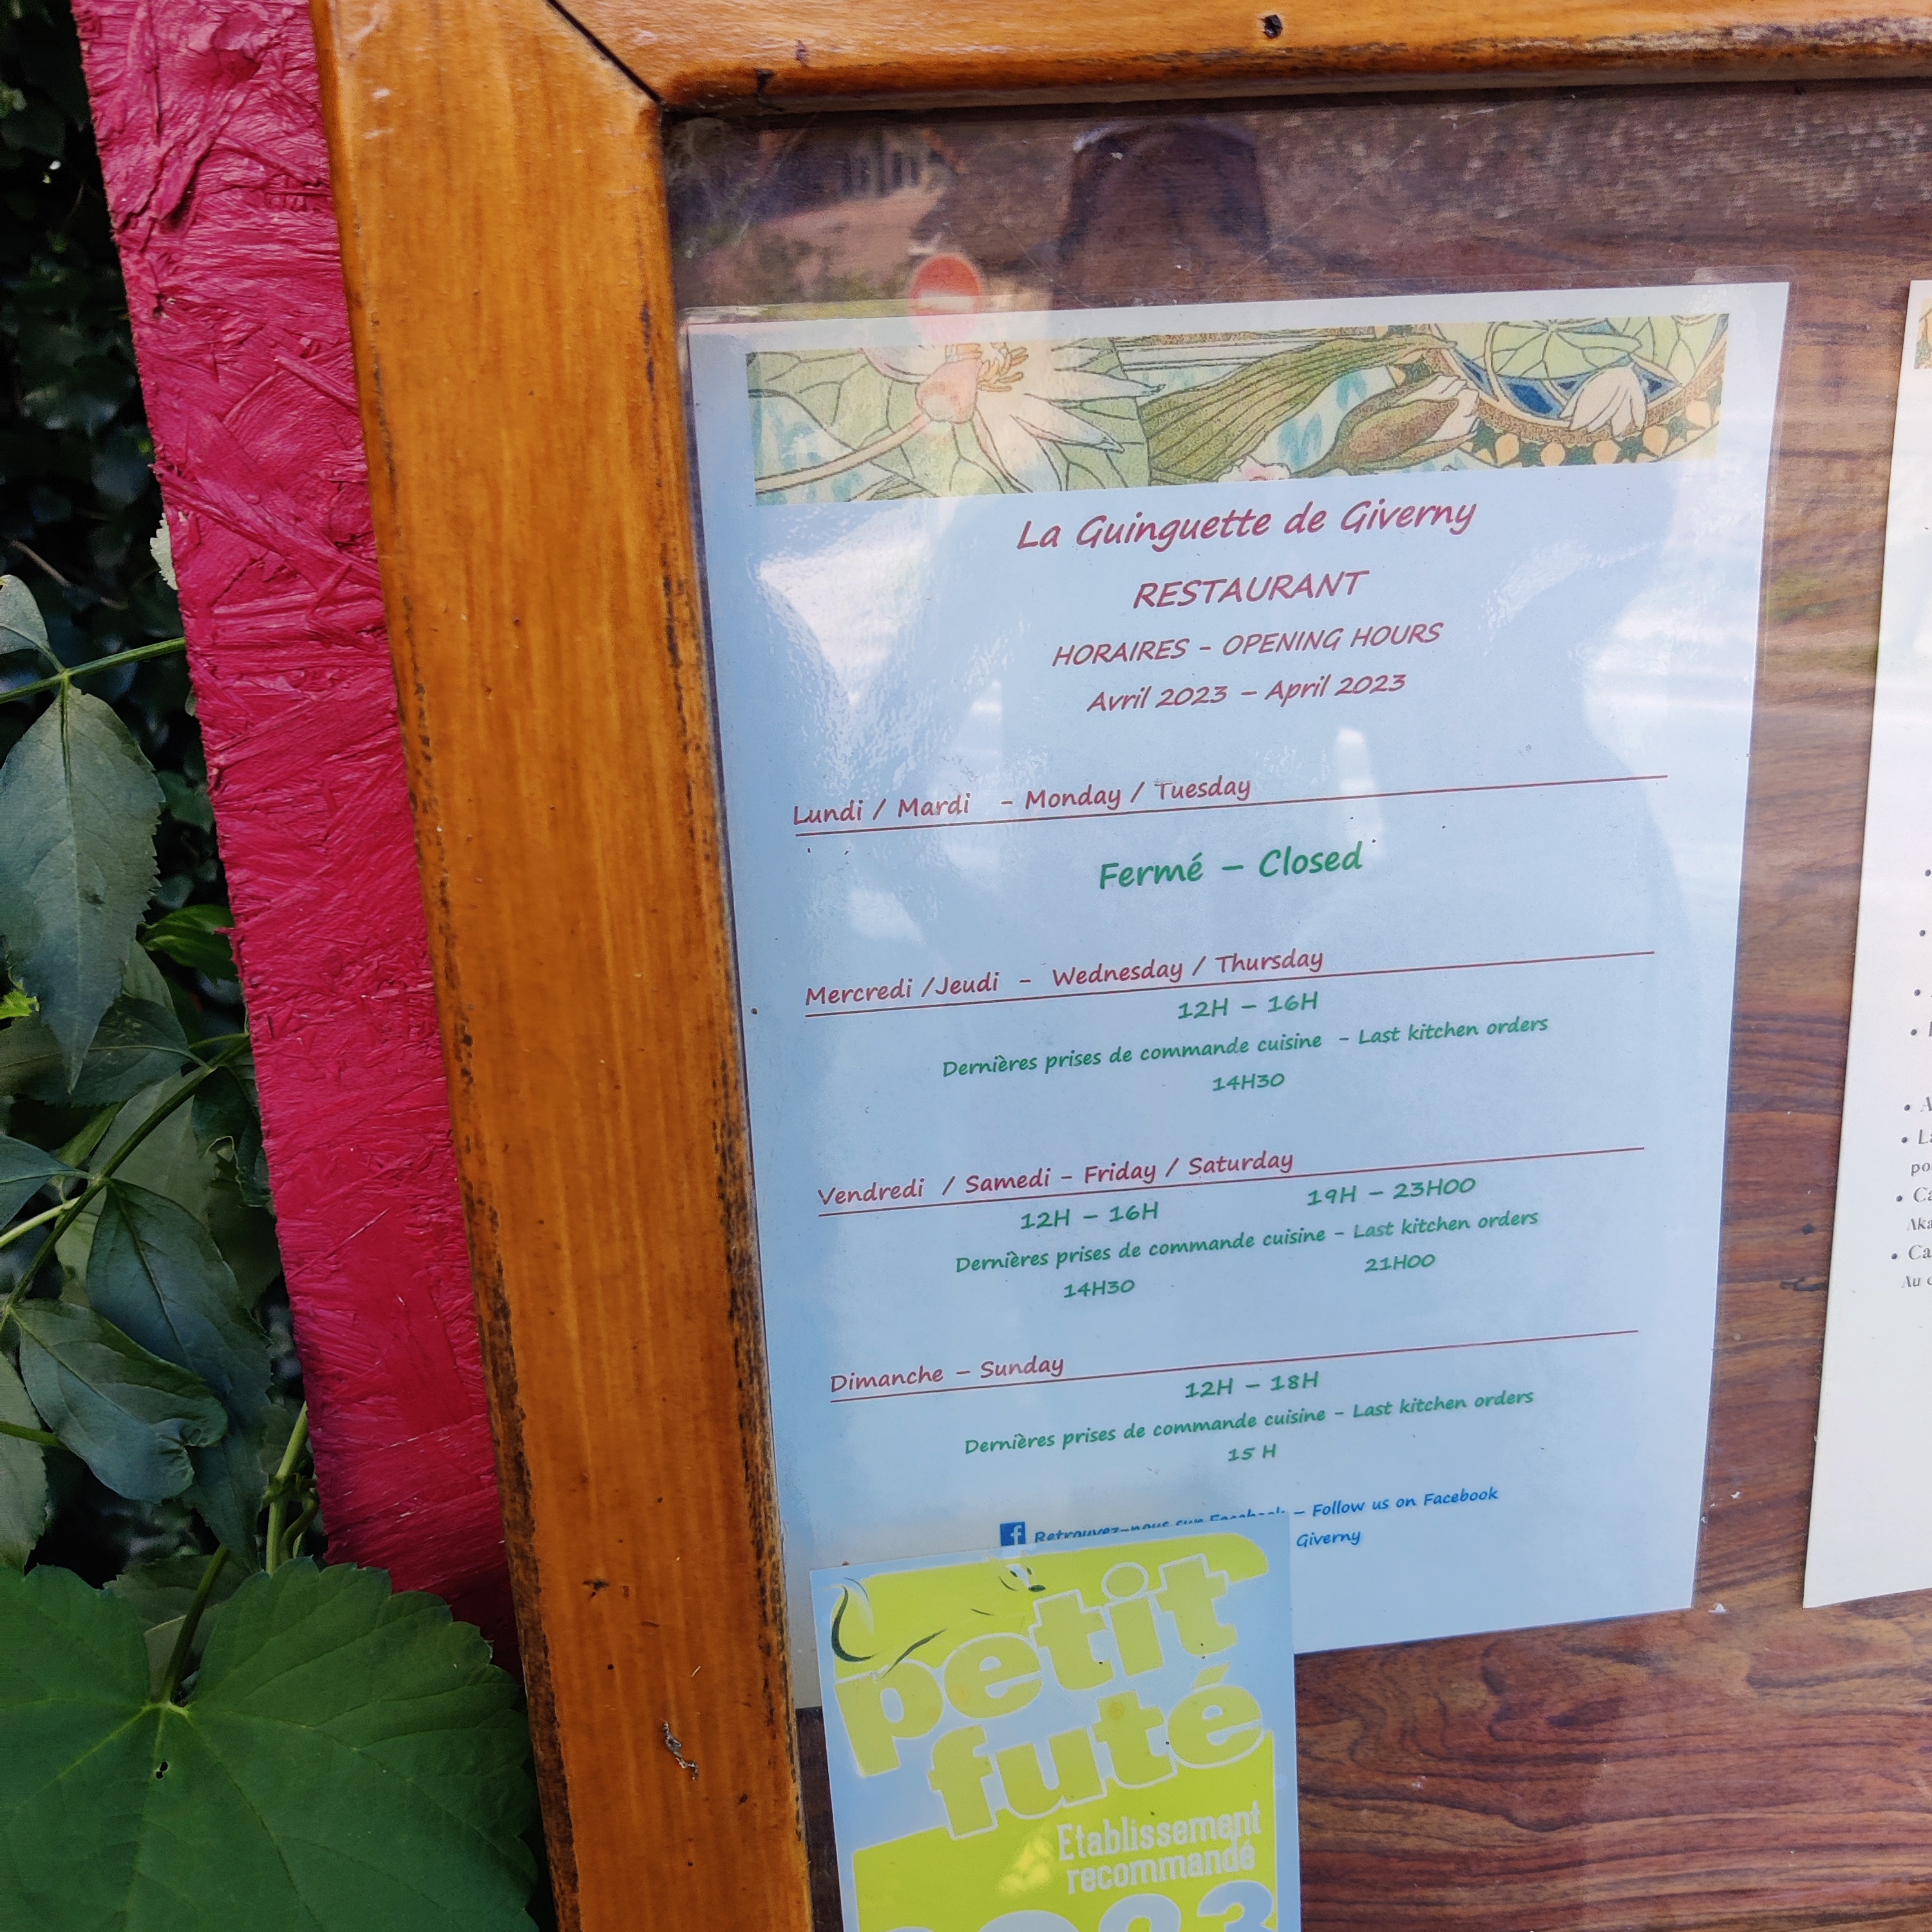 La Guinguette de Giverny
RESTAURANT
HORAIRES - OPENING HOURS
Avril 2023 – April 2023
Lundi / Mardi - Monday / Tuesday
Fermé – Closed
Mercredi /Jeudi - Wednesday / Thursday
12H – 16H
Dernières prises de commande cuisine - Last kitchen orders
14H30
Vendredi / Samedi - Friday / Saturday
12H – 16H 19H – 23H00
Dernières prises de commande cuisine - Last kitchen orders
14H30 21H00
Dimanche – Sunday
12H – 18H
Dernières prises de commande cuisine - Last kitchen orders
15 H
Retrouvez-nous sur Facebook – Follow us on Facebook
Giverny
petit
futé
Etablissement
recommandé
2023